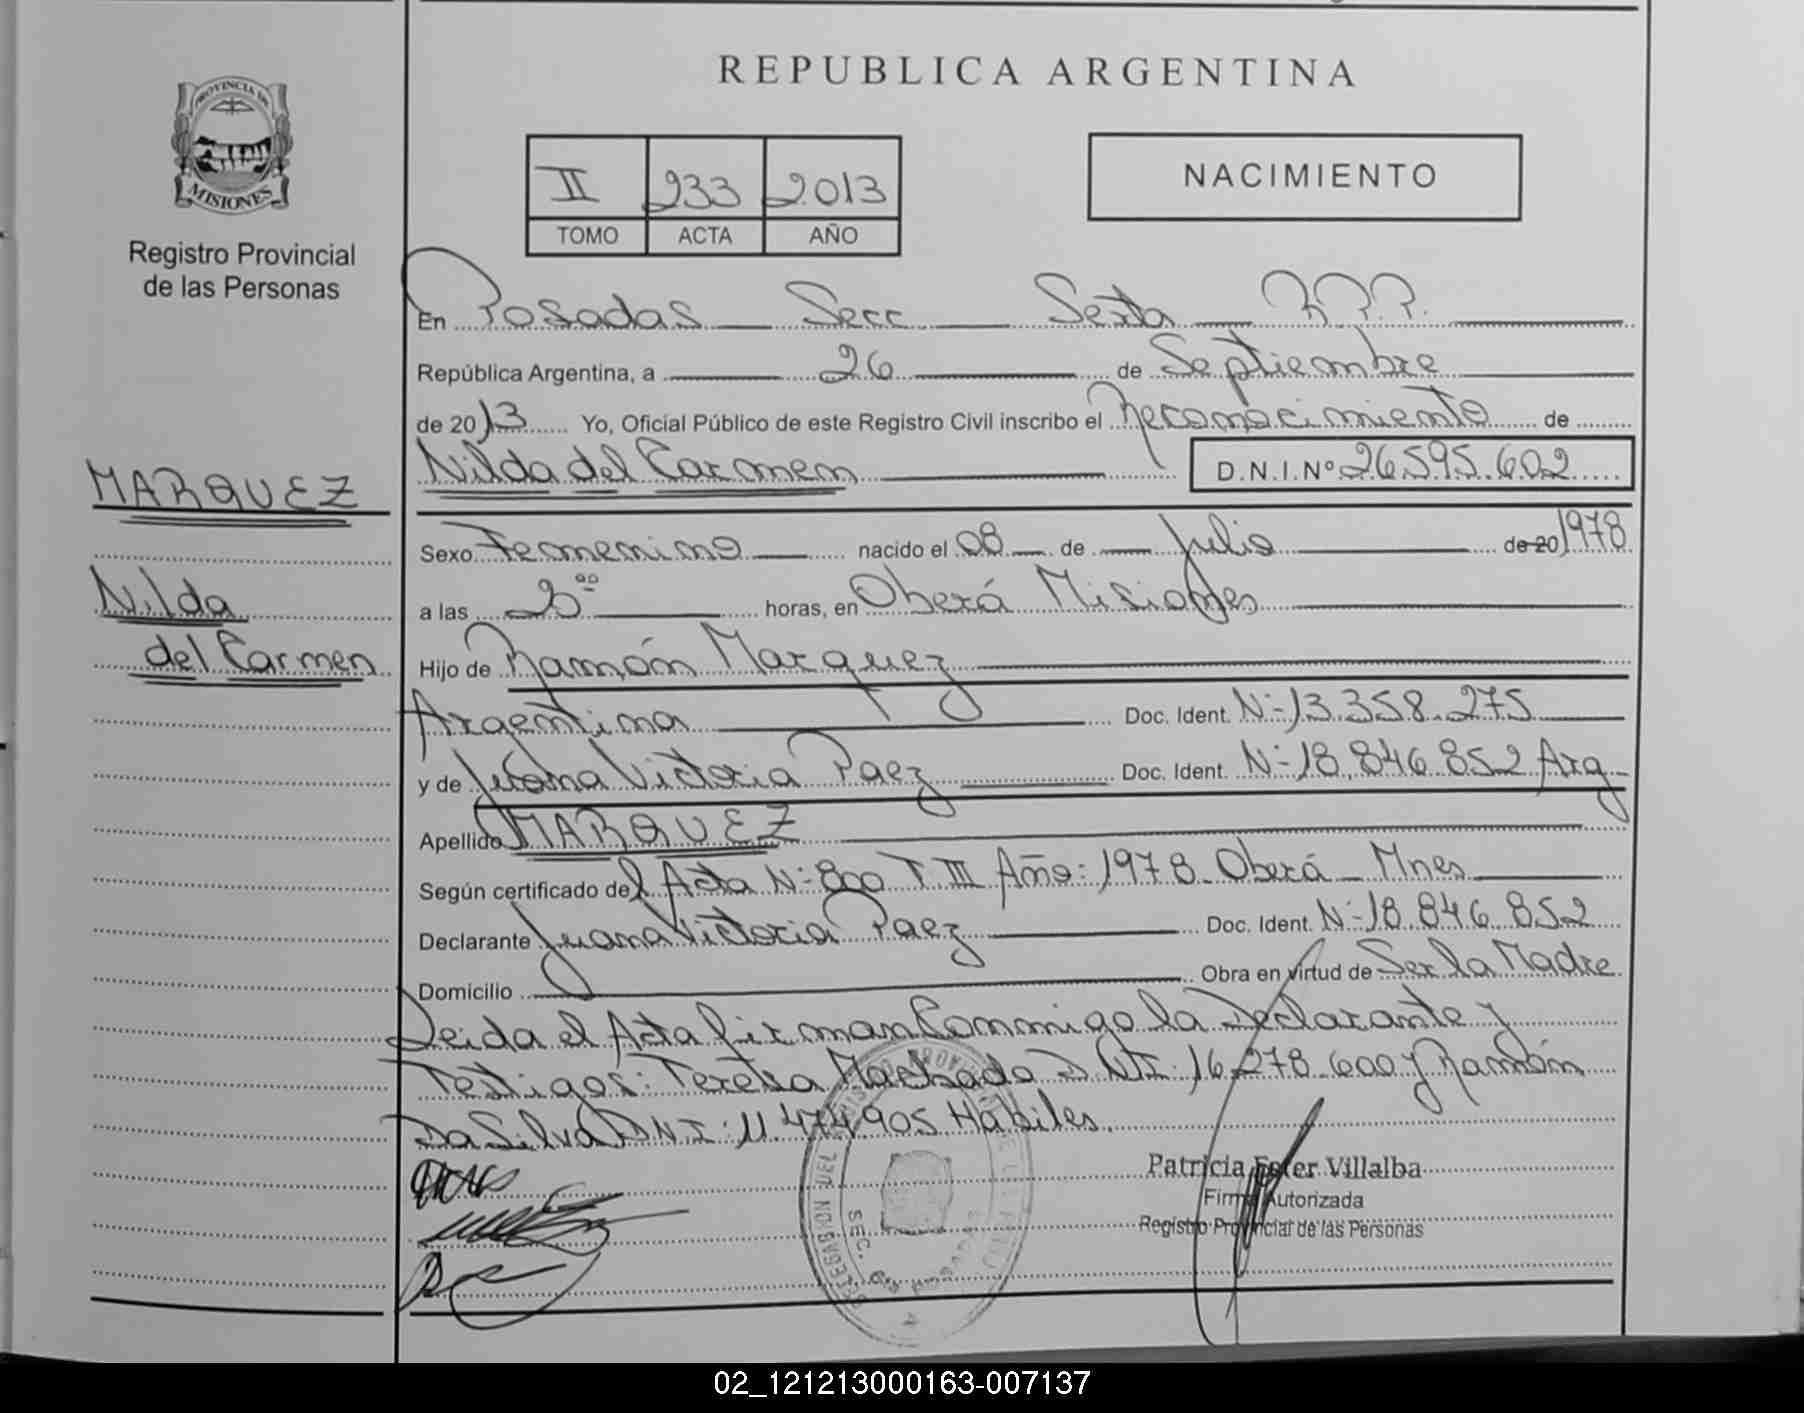 REPUBLICA ARGENTINA
PROVINCIA DE
MISIONES
Registro Provincial
de las Personas
II 233 2013
TOMO ACTA AÑO
NACIMIENTO
En Posadas Secc Sexta R.P.P.
República Argentina, a 26 de Septiembre
de 2013 Yo, Oficial Público de este Registro Civil inscribo el Reconocimiento de
MARQUEZ
Nilda del Carmen D.N.I.Nº 26.595.602
Sexo Femenino nacido el 08 de Julio de 20 1978
Nilda
a las 20 ºº horas, en Oberá Misiones
del Carmen
Hijo de Ramón Marquez
Argentina Doc. Ident. Nº 13.358.275
y de Juana Victoria Paez Doc. Ident. Nº 18.846.852 Arg
Apellido MARQUEZ
Según certificado del Acta Nº 800 T III Año: 1978 Oberá - Mnes
Declarante Juana Victoria Paez Doc. Ident. Nº 18.846.852
Domicilio Obra en virtud de Ser la Madre
Leida el Acta firman Conmigo la Declarante y
Testigos: Teresa Machado D.N.I: 16.278.600 y Ramón
Da Silva DNI: 11.474.905 Hábiles.
Patricia Ester Villalba
Firma Autorizada
Registro Provincial de las Personas
DELEGACION DEL
SEC. 6ª POSADAS
02_121213000163-007137